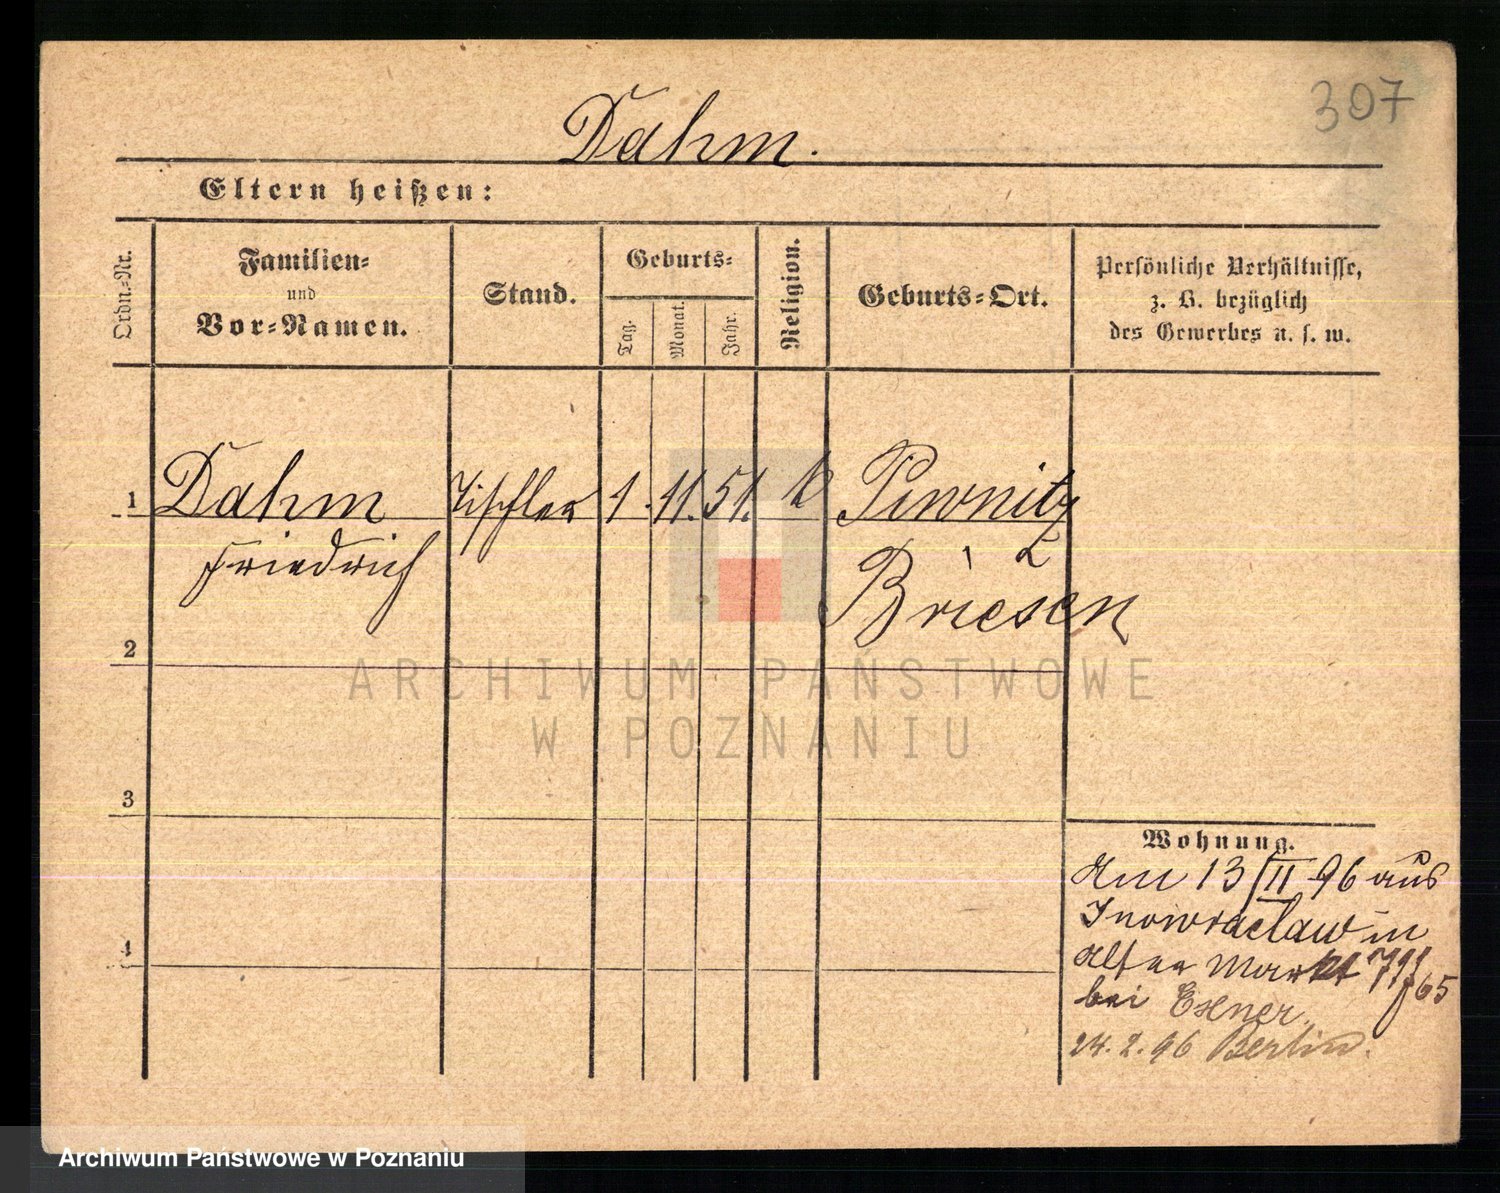 307
Dahm.
Eltern heißen:
Ordn.-Nr.
Familien-
und
Vor-Namen.
Stand.
Geburts-
Tag.
Monat.
Jahr.
Religion.
Geburts-Ort.
Persönliche Verhältnisse,
z. B. bezüglich
des Gewerbes u. s. w.
1 Dahm Tischler 1. 11. 51. k Piwnitz
Friedrich
Briesen
2
3
4
Wohnung.
Am 13/II 96 aus
Inowraclaw in
Alter Markt
bei Exner.
24. 2. 96 Berlin.
ARCHIWUM PAŃSTWOWE
W POZNANIU
Archiwum Państwowe w Poznaniu